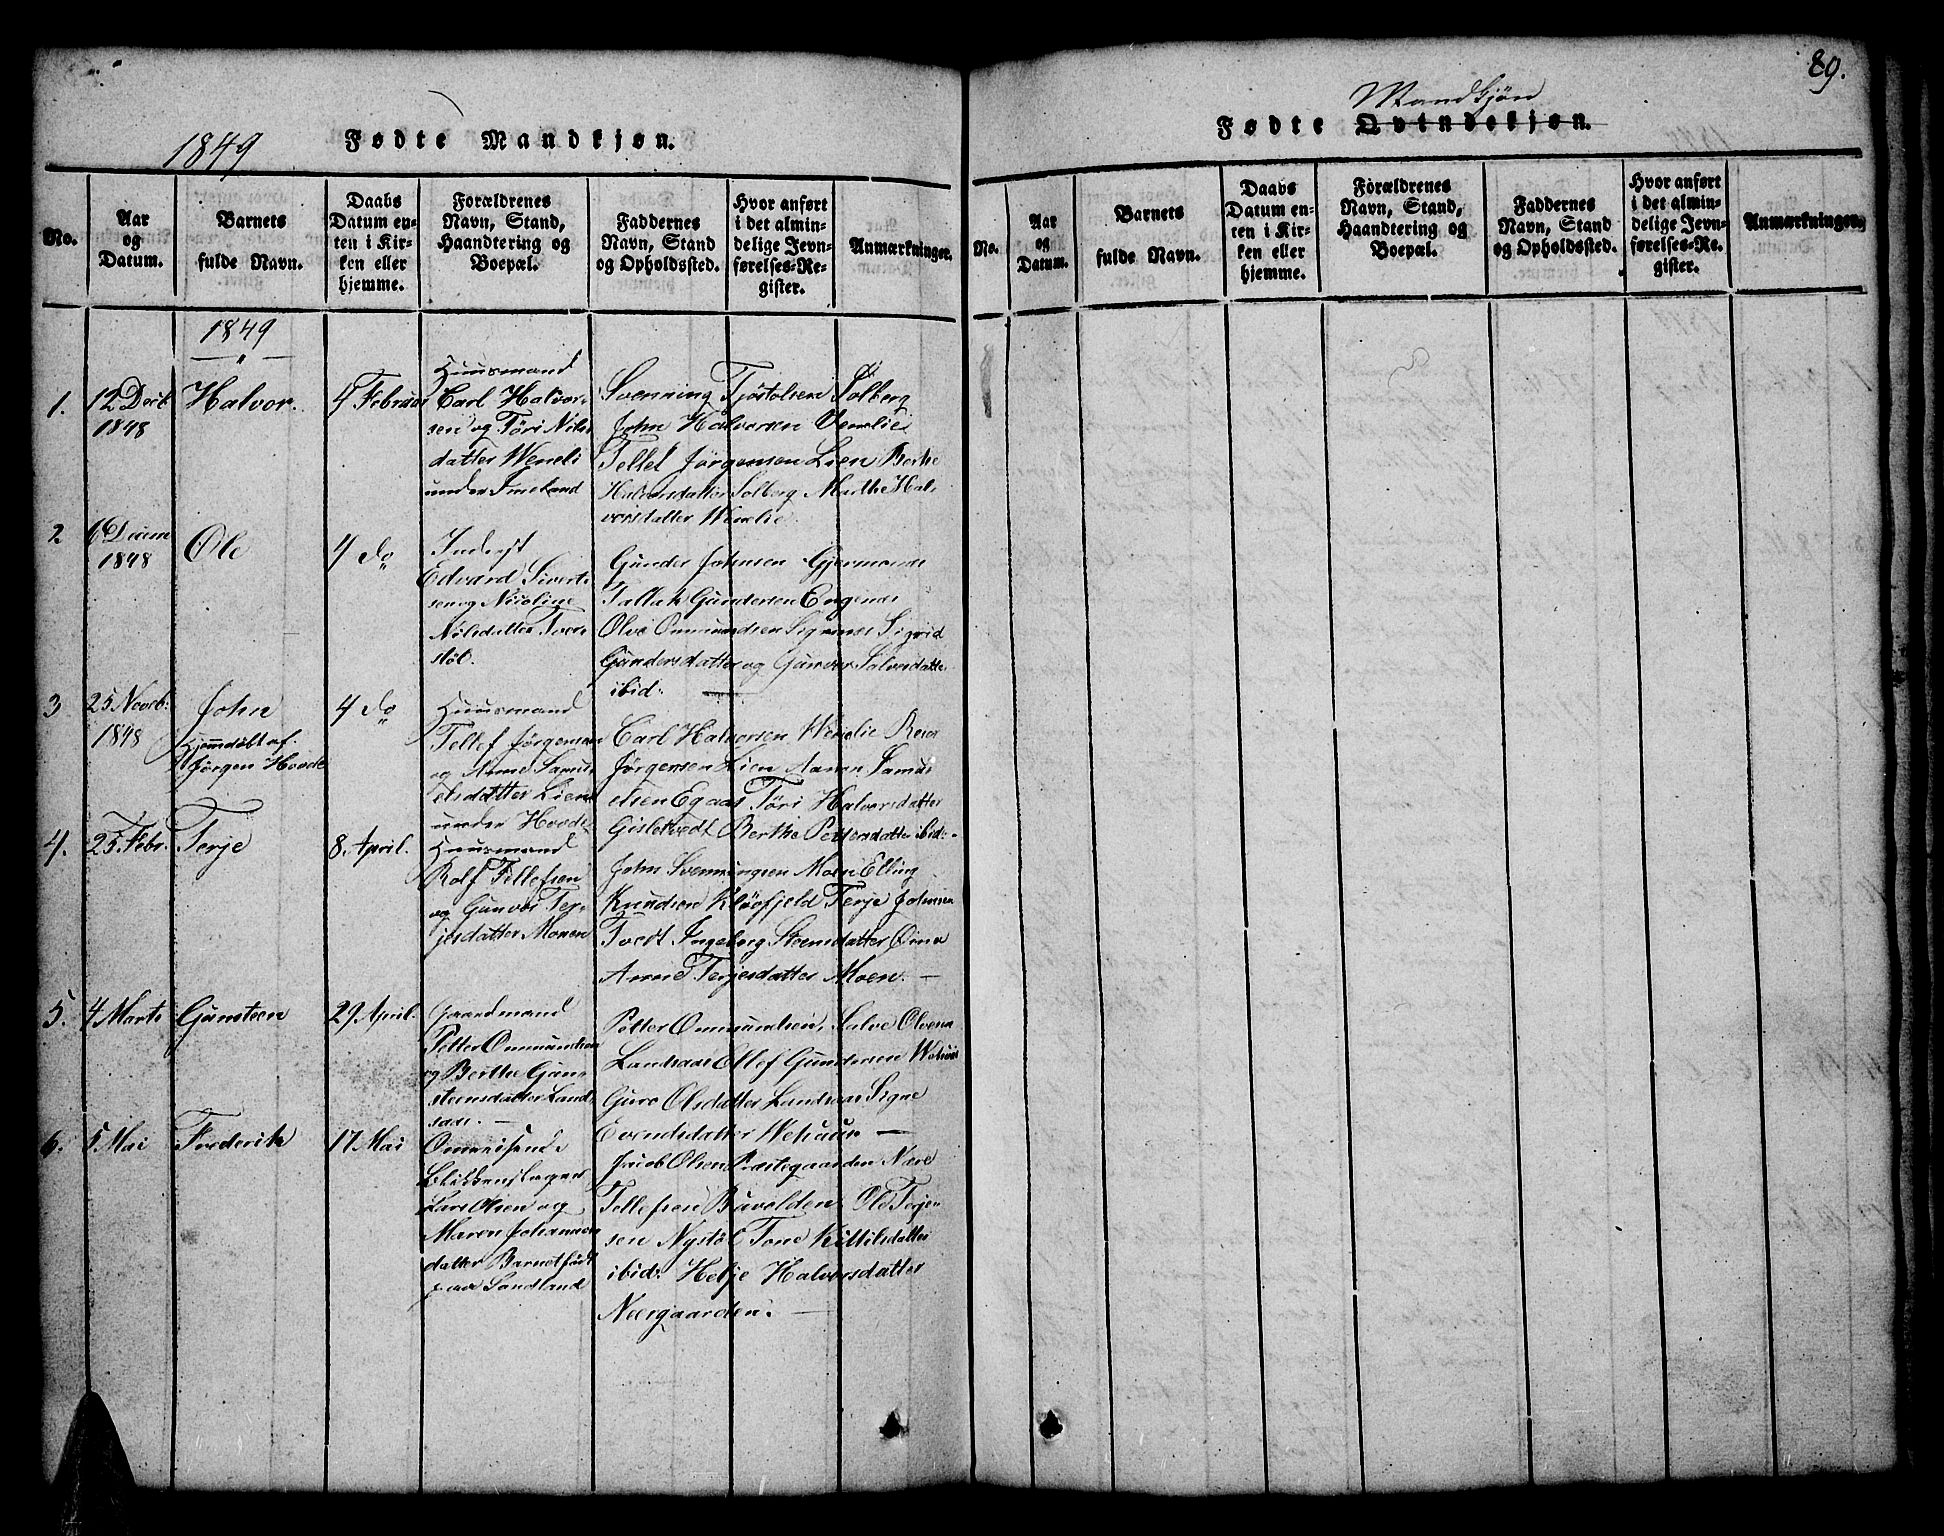 89.
1849
Fødte Mandkjøn.
No.
Aar
og
Datum.
Barnets
fulde Navn.
Daabs
Datum en-
ten i Kir-
ken eller
hjemme.
Forældrenes
Navn, Stand,
Haandtering og
Boepæl.
Faddernes
Navn, Stand
og Opholdssted.
Hvor anført
i det almin-
delige Jevn-
førelses-Re-
gister.
Anmærkninger.
1849
1.
12 Decb
1848
Halvor.
4 Februar
Huusmand
Carl Halvor-
sen og Töri Nils
datter Weneli
under Imeland
Svenning Tjöstolsen Solberg
John Halvorsen Venelie
Tellef Jörgensen Lien Berthe
Halvorsdatter Solberg Marthe Hal-
vorsdatter Wenelie.
2
6 Decem
1848
Ole
4 do
Inderst
Edvard Sivert-
sen og Nicoline
Nilsdatter Tver-
stöl.
Gunder Johnsen
Tallak Gundersen Engenes
Olve Ommundsen Sigrid
Gundersdatter og Gunvor Salvesdatte
ibid:
3
25 Novb:
1848
John
Hjemdöbt af
Jörgen Hovde
4 do
Huusmand
Tellef Jörgensen
og Anne Samu-
elsdatter Lien
under Hovde
Carl Halvorsen Wenelie
Jörgensen Lien Aanon Samu-
elsen Egaas Töri Halvorsdatter
Gisletvedt Berthe Pettersdatter ibid:
4.
25. Febr.
Terje
8. April.
Huusmand
Rolf Tellefsen
og Gunvor Ter-
jesdatter Monen
John Svenningsen Moen Elling
Knudsen Klöofjeld Terje Johnsen
Tvedt Ingeborg Steensdatter
Anne Terjesdatter Moen. —
5.
4 Marts
Gunsteen
29 April.
Gaardmand
Petter Ommundsen
og Berthe Gun-
steensdatter Land-
saas. —
Petter Ommundsen, Salve Olvena
Landsaas Ellef Gundersen
Guro Olsdatter Landsaas Signe
Evendsdatter Wehuus —
6.
5. Mai
Frederik
17 Mai
Omreisende
Blikkenslager
Lars Olsen og
Maren Johannes
datter Barnet födt
paa Sandland
Jacob Olsen Præstegaarden
Tellefsen Buvolden. Ole Terje-
sen Nystöl Tone Kittilsdatter
ibid: Helje Halvorsdatter
Neergaarden. —
Mandkjön
Fødte Qvindekjøn.
No.
Aar
og
Datum.
Barnets
fulde Navn.
Daabs
Datum en-
ten i Kir-
ken eller
hjemme.
Forældrenes
Navn, Stand,
Haandtering og
Boepæl.
Faddernes
Navn, Stand
og Opholdssted.
Hvor anført
i det almin-
delige Jevn-
førelses-Re-
gister.
Anmærkninger.